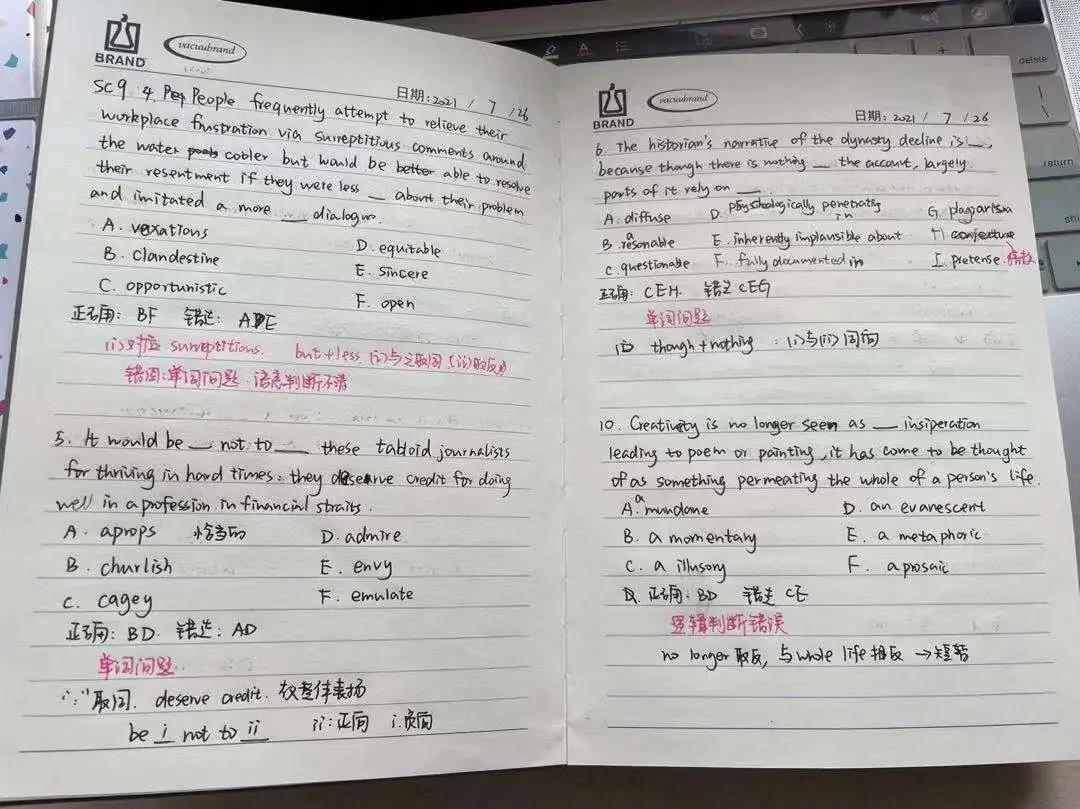 BRAND
vacuubrand
日期:2021 / 7 / 26
SC9 4. People frequently attempt to relieve their
workplace frustration via surreptitious comments around
the water cobler but would be better able to resolve
their resentment if they were less _ about their problem
and imitated a more _ dialogue.
A. vexations D. equitable
B. clandestine E. sincere
C. opportunistic F. open
正确: BF 错选: AE
(i)对应 surreptitious. but+less (i)与之取同 (ii)取反
错因:单词问题. 语意判断不清
5. It would be _ not to _ these tabloid journalists
for thriving in hard times: they deserve credit for doing
well in a profession in financial straits.
A. aprops 恰当的 D. admire
B. churlish E. envy
C. cagey F. emulate
正确: BD. 错选: AD
单词问题
":"取同. deserve credit. 表扬
be i not to ii ii:正向 i.负向
BRAND
vacuubrand
日期: 2021 / 7 / 26
6. The historian's narrative of the dynasty decline is _,
because though there is nothing _ the account, largely
parts of it rely on _.
A. diffuse D. psychologically penetratig in G. plagiarism
B. resonable E. inherently implausible about H conjecture
C. questionable F. fully documented in I. pretense.
正确: CEH. 错选 CEG
单词问题
though+nothing : (i)与(ii)同向
10. Creativity is no longer seen as _ insiperation
leading to poem or painting, it has come to be thought
of as something permeating the whole of a person's life.
A. a mundane D. an evanescent
B. a momentary E. a metaphoric
C. a illusory F. a prosaic
正确: BD 错选 CE
逻辑判断错误
no longer 取反, 与whole life 相反 → 短暂